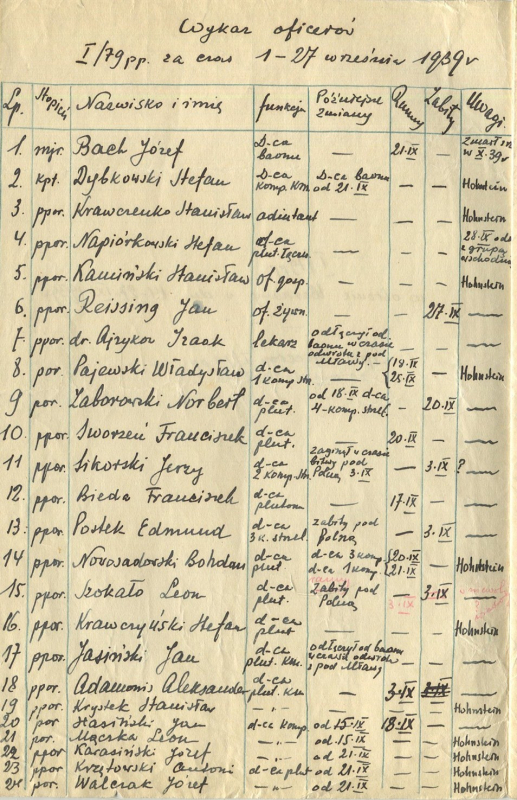 Wykaz oficerów
I/79 pp. za czas 1-27 września 1939 r
Lp. Stopień Nazwisko i imię funkcja Późniejsze zmiany Ranny Zabity Uwagi
1. mjr. Bach Józef D-ca baonu — 21.IX — zmarł w X.39r
2. kpt. Dybkowski Stefan D-ca komp. Km. D-ca baonu od 21.IX — — Hohnstein
3. ppor. Krawczenko Stanisław adiutant — — — Hohnstein
4. ppor. Napiórkowski Stefan of-ca plut. łączn. — — — 28.IX z grupą wschodnią
5. ppor. Kamiński Stanisław of. gosp. — — — Hohnstein
6. ppor. Reissing Jan of. żywn. — — 27.IX —
7. ppor. dr. Ajzykor Izaak lekarz odłączył od baonu w czasie odwrotu z pod Mławy. — — —
8. por. Pajewski Władysław d-ca 1 komp. str. — {18.IX 25.IX — Hohnstein
9 por. Zaborowski Norbert d-ca plut. od 15.IX d-ca 4-komp. strzel. — 20.IX —
10. ppor. Sworzeń Franciszek d-ca plut. — 20.IX — —
11 ppor. Sikorski Jerzy d-ca 2 komp. str. zaginął w czasie bitwy pod Pułtus. 3.IX — 3.IX ? —
12. ppor. Bieda Franciszek d-ca plutonu — 17.IX — —
13. ppor. Postek Edmund d-ca 3 k. strzel. zabity pod — 3.IX —
14 ppor. Nowosadowski Bohdan d-ca plut. d-ca 3 komp d-ca 1 komp {20.IX 21.IX — Hohnstein
15. ppor. Szokało Leon d-ca plut. zabity pod 3.IX 3.IX —
16. ppor. Krawczyński Stefan d-ca plut — — — Hohnstein
17 ppor. Jasiński Jan d-ca plut. Km. odłączył od baonu w czasie odwrotu z pod Mławy — — —
18 ppor. Adamonis Aleksander d-ca plut. Km — 3.IX —
19 ppor. Krystek Stanisław -"- — — — Hohnstein
20 por Stasiński Jan d-ca komp. od 15.IX 18.IX —
21 por. Mączka Leon -"- od 15.IX Hohnstein
22 ppor Karasiński Józef -"- od 21.IX Hohnstein
23 ppor Krzętowski Antoni d-ca plut od 21.IX Hohnstein
24 por. Walczak Józef -"- od 21.IX Hohnstein